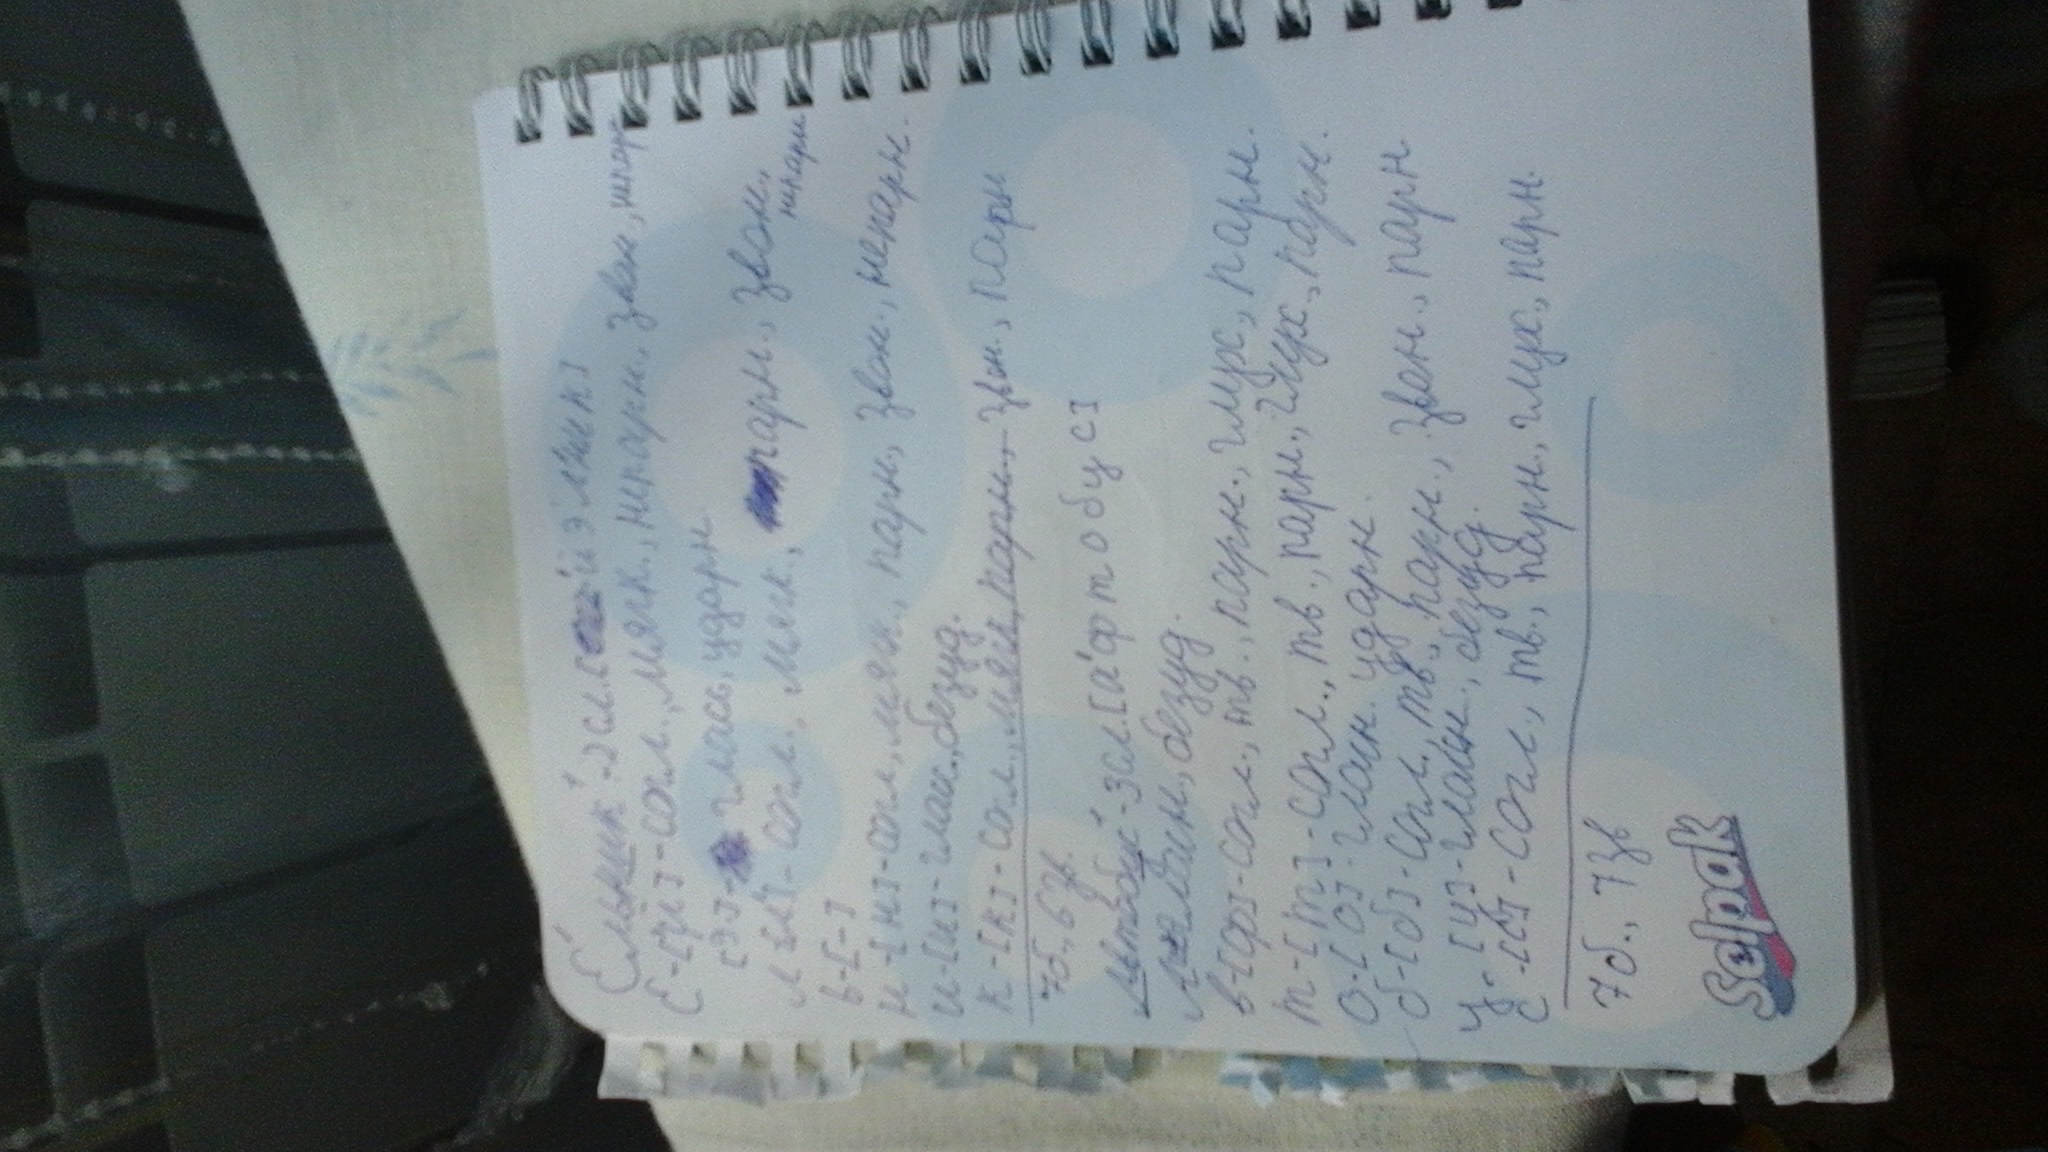 Ельник - 2 сл. [й'эл'ник]
Е - [й'] - согл., мягк., нпарн., звон., нпар
[э] - глас, ударн
л [л'] - согл., мягк., парн., звон., нпарн
ь - [-]
н - [н] - согл, мягк., парн, звон., непарн.
и - [и] - глас., безуд.
к - [к] - согл., мягк, парн., звон., парн
7б., 6 зв.
Автобус - 3 сл. [а'фтобус]
гласн, безуд.
в - [ф] - согл., тв., парн., глух., парн.
т - [т] - согл., тв., парн., глух., парн.
о - [о] - гласн. ударн.
б - [б] - согл., тв., парн., звон., парн
у - [у] - гласн., безуд.
с - [с] - согл., тв., парн., глух., парн.
7 б., 7 зв
Sulpak